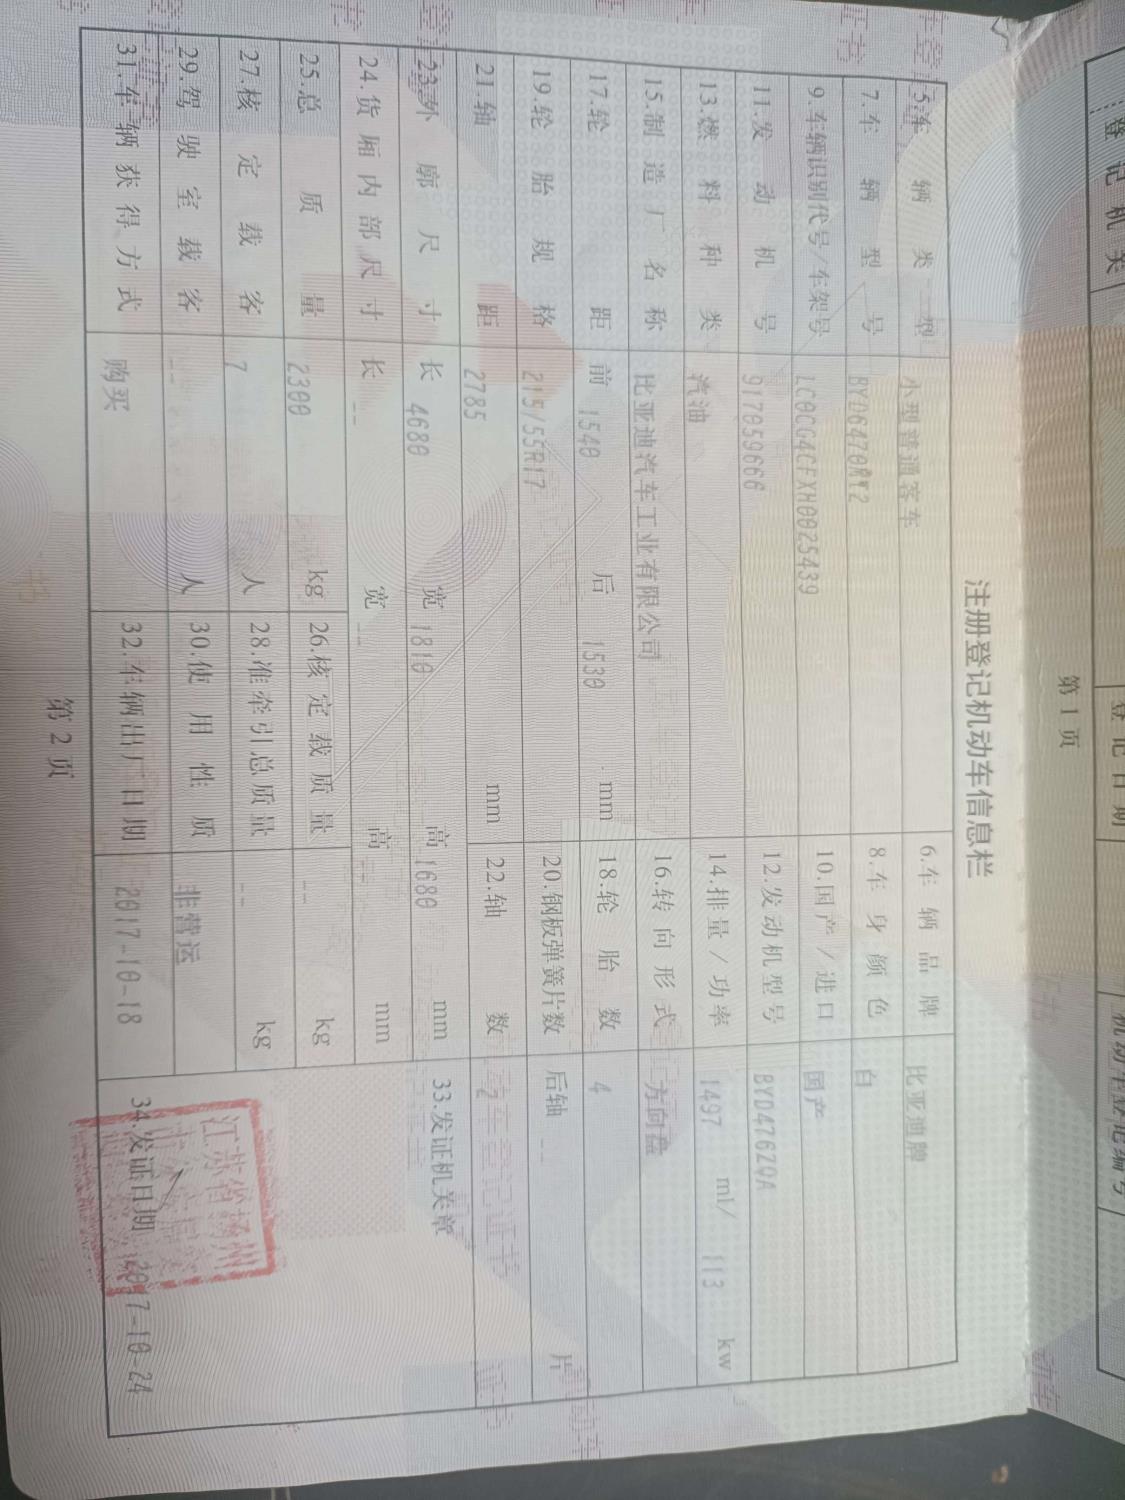 登记机关
登记日期
机动车登记编号
第1页
注册登记机动车信息栏
5.车辆类型 小型普通客车 6.车辆品牌 比亚迪牌
7.车辆型号 BYD6470MT2 8.车身颜色 白
9.车辆识别代号/车架号 LC0CG4CFXH0025439 10.国产/进口 国产
11.发动机号 917059666 12.发动机型号 BYD476ZQA
13.燃料种类 汽油 14.排量/功率 1497 ml/ 113 kw
15.制造厂名称 比亚迪汽车工业有限公司 16.转向形式 方向盘
17.轮距 前 1540 后 1530 mm 18.轮胎数 4
19.轮胎规格 215/55R17 20.钢板弹簧片数 后轴 -- 片
21.轴距 2785 mm 22.轴数 2
23.外廓尺寸 长 4680 宽 1810 高 1680 mm 33.发证机关章
24.货厢内部尺寸 长 -- 宽 -- 高 -- mm
25.总质量 2300 kg 26.核定载质量 -- kg
27.核定载客 7 人 28.准牵引总质量 -- kg
29.驾驶室载客 -- 人 30.使用性质 非营运
江苏省扬州
31.车辆获得方式 购买 32.车辆出厂日期 2017-10-18 34.发证日期 2017-10-24
第2页